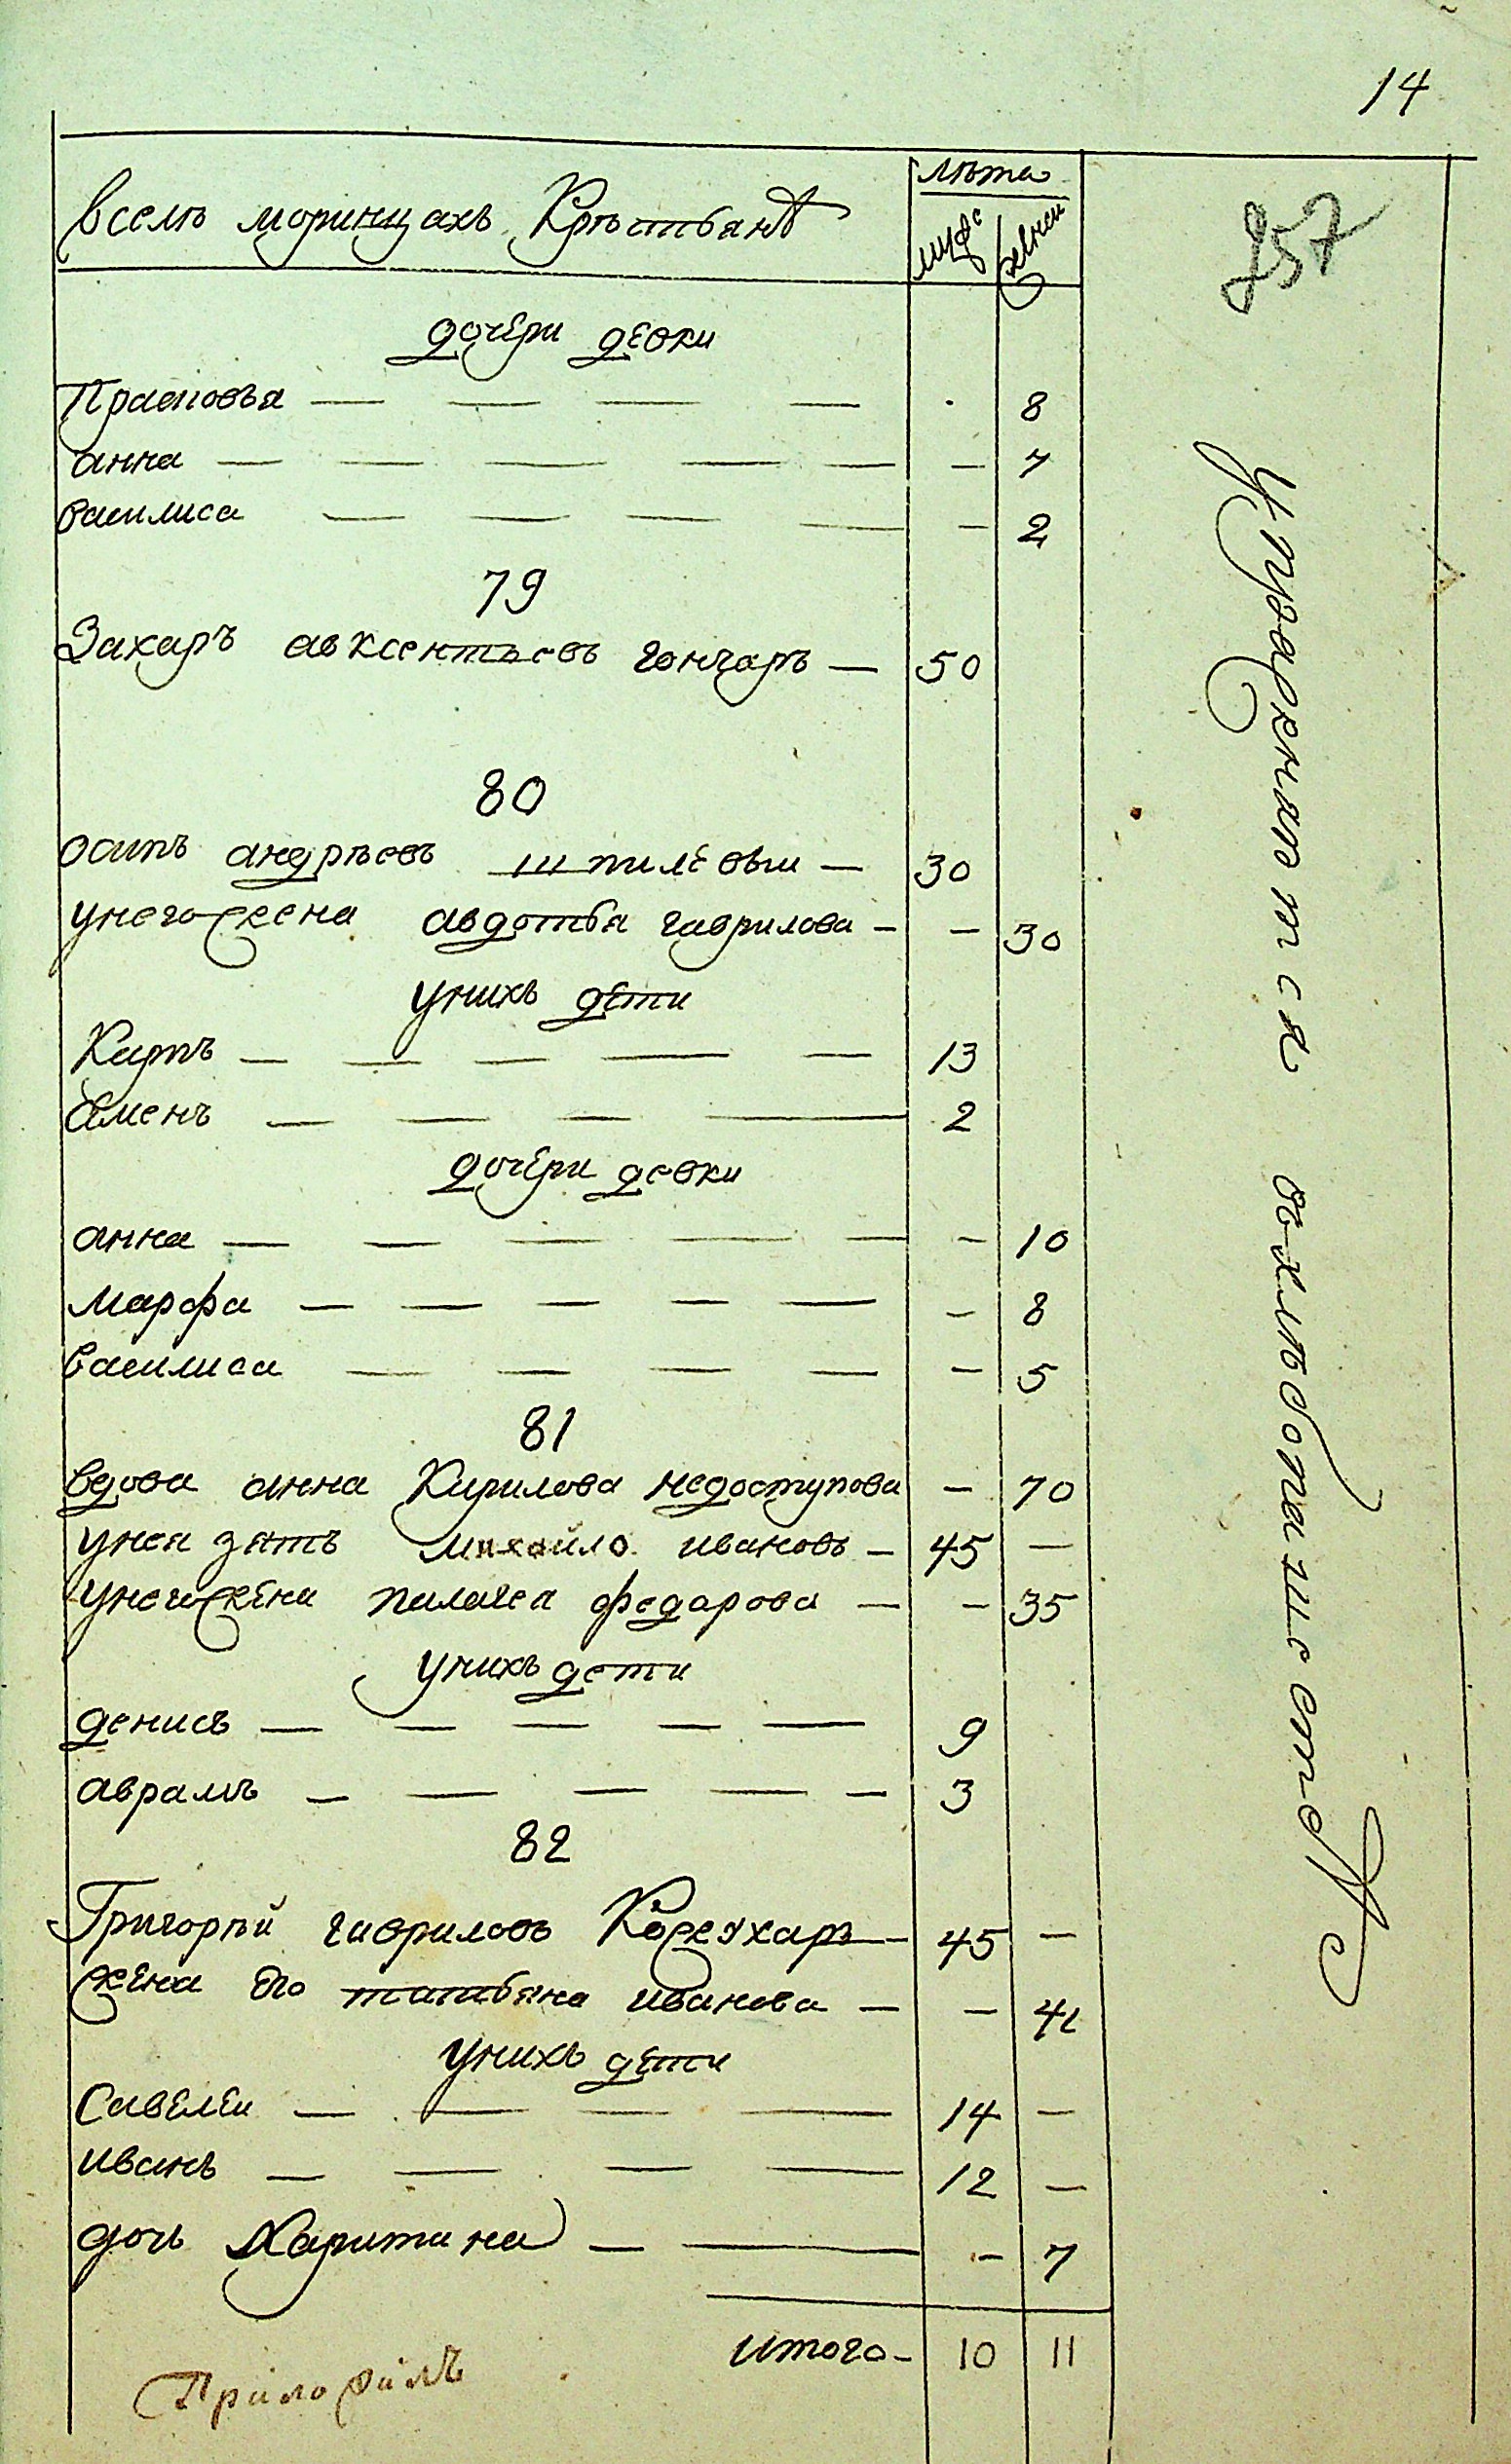 14
лѣта
Вселѣ моринцахъ Крѣстьянѣ
мужс женск
257
дочери девки
Прасковья — — — — . 8
анна — — — — — — 7
василиса — — — — — 2
79
Захаръ авксентьевъ гончаръ — 50
80
осипъ андрѣевъ шпилевыи — 30
унего жена авдотья гаврилова — — 30
унихъ дети
Карпъ — — — — — 13
Семенъ — — — — 2
дочери девки
анна — — — — — — 10
марфа — — — — — — 8
василиса — — — — — 5
81
вдова анна Кирилова недоступова — 70
унея зять михайло ивановъ — 45 —
унего жена пилагея федарова — — 35
унихъ дети
денисъ — — — — — 9
аврамъ — — — — — 3
82
Григорѣй гавриловъ Кожухаръ — 45 —
жена его татьяна иванова — — 41
унихъ дети
Савелеи — — — — 14 —
иванъ — — — — 12 —
дочь Харитина — — — 7
итого — 10 11
Приложилъ
упражняются въ хлѣбопашестве